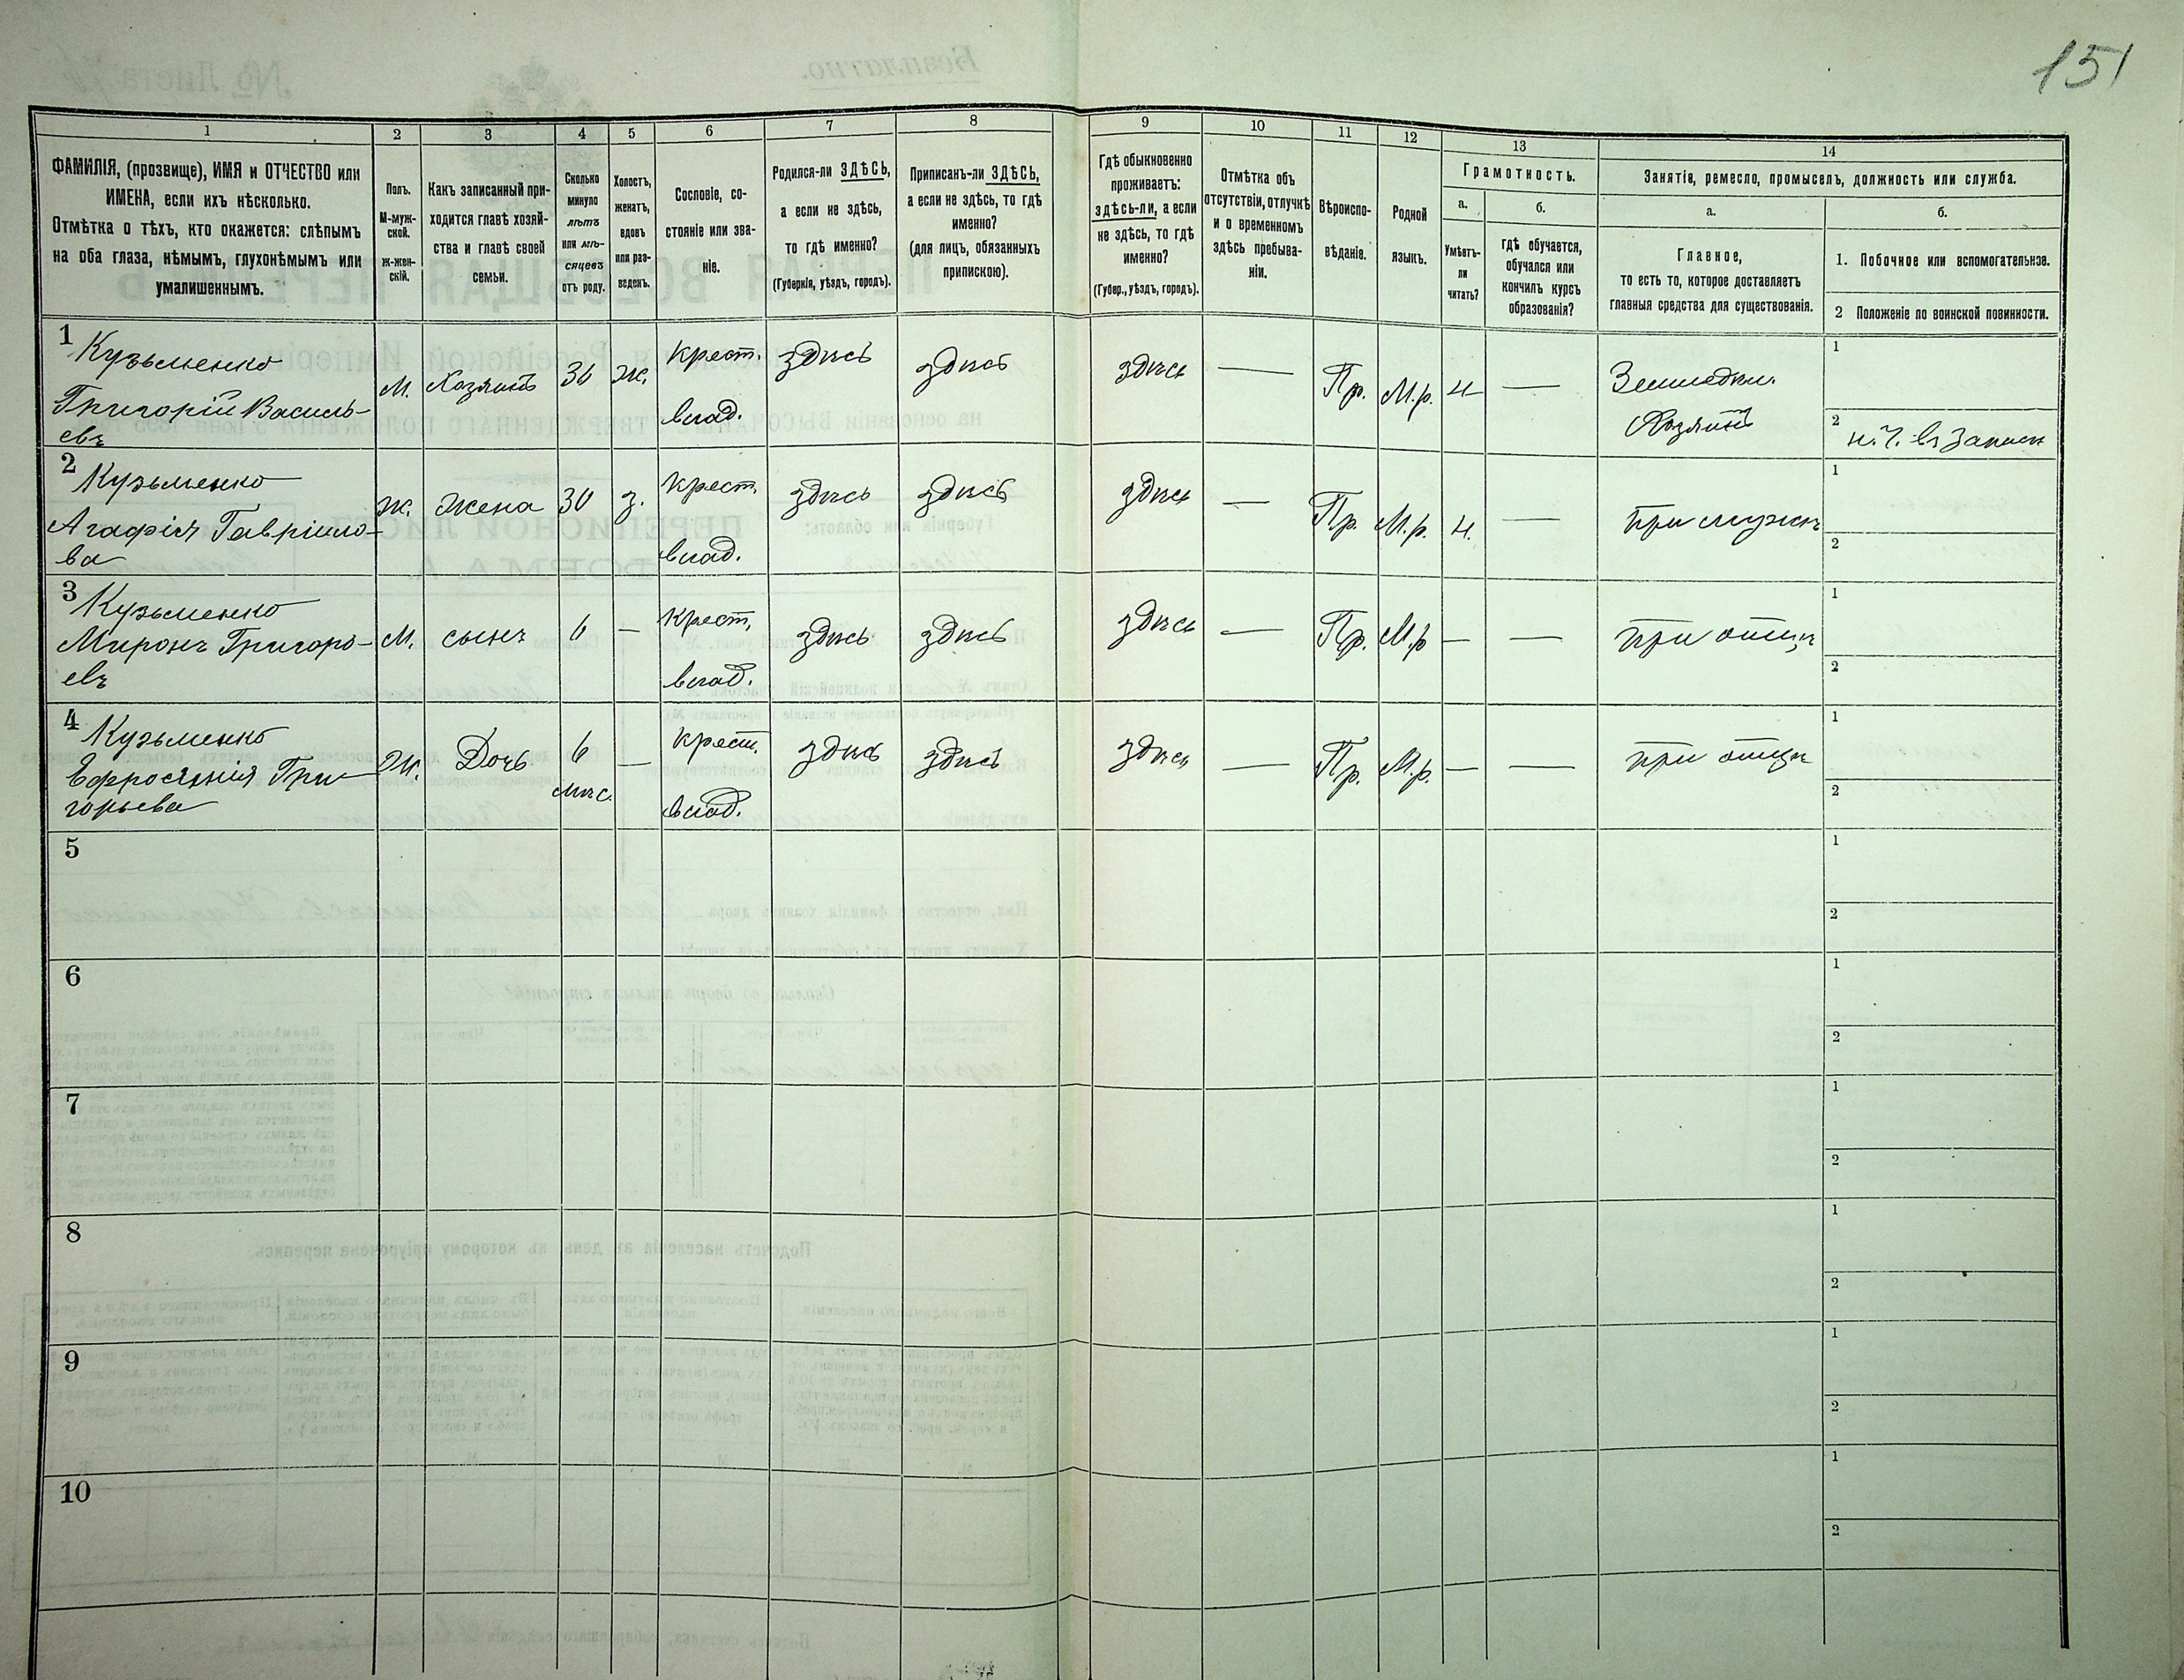 151
1 2 3 4 5 6 7 8 9 10 11 12 13 14
ФАМИЛІЯ, (прозвище), ИМЯ и ОТЧЕСТВО или
ИМЕНА, если ихъ нѣсколько.
Отмѣтка о тѣхъ, кто окажется: слѣпымъ
на оба глаза, нѣмымъ, глухонѣмымъ или
умалишеннымъ.
Полъ.
М-муж-
ской.
ж-жен-
скій.
Какъ записанный при-
ходится главѣ хозяй-
ства и главѣ своей
семьи.
Сколько
минуло
лѣтъ
или мѣ-
сяцевъ
отъ роду.
Холостъ,
женатъ,
вдовъ
или раз-
веденъ.
Сословіе, со-
стояніе или зва-
ніе.
Родился-ли ЗДѢСЬ,
а если не здѣсь,
то гдѣ именно?
(Губернія, уѣздъ, городъ).
Приписанъ-ли ЗДѢСЬ,
а если не здѣсь, то гдѣ
именно?
(для лицъ, обязанныхъ
припискою).
Гдѣ обыкновенно
проживаетъ:
здѣсь-ли, а если
не здѣсь, то гдѣ
именно?
(Губер., уѣздъ, городъ).
Отмѣтка объ
отсутствіи, отлучкѣ
и о временномъ
здѣсь пребыва-
ніи.
Вѣроиспо-
вѣданіе.
Родной
языкъ.
Грамотность.
а.
Умѣетъ-
ли
читать?
б.
гдѣ обучается,
обучался или
кончилъ курсъ
образованія?
Занятіе, ремесло, промыселъ, должность или служба.
а.
Главное,
то есть то, которое доставляетъ
главныя средства для существованія.
б.
1. Побочное или вспомогательное.
2 Положеніе по воинской повинности.
1 Кузьменко
Григорій Василь-
евъ
М. Хозяинъ 36 Ж. крест.
влад.
здѣсь здѣсь здѣсь — Пр. М.р. Н —
Земледѣл.
Хозяинъ
1
2
2 Кузьменко
Агафія Гавріило-
ва
Ж. Жена 30 З. крест.
влад.
здѣсь здѣсь здѣсь — Пр. М.р. Н. — при мужѣ
1
2
3 Кузьменко
Миронъ Григорь-
евъ
М. сынъ 6 — крест.
влад.
здѣсь здѣсь здѣсь — Пр. М.р — — при отцѣ
1
2
4 Кузьменко
Ефросинія Гри-
горьева
Ж. Дочь 6
мѣс.
— крест.
влад.
здѣсь здѣсь здѣсь — Пр. М.р. — — при отцѣ
1
2
5
1
2
6
1
2
7
1
2
8
1
2
9
1
2
10
1
2